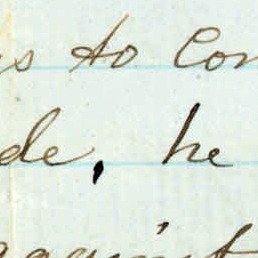 to Con
de, he
against